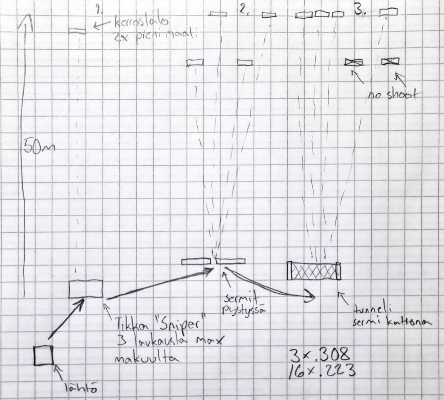 1.
kerrostalo
2x pieni maali
2.
3.
no shoot
50m
sermit
pystyssä
tunneli
sermi kattona
Tikka "Sniper"
3 laukausta max
makuulta
lähtö
3x .308
16x .223